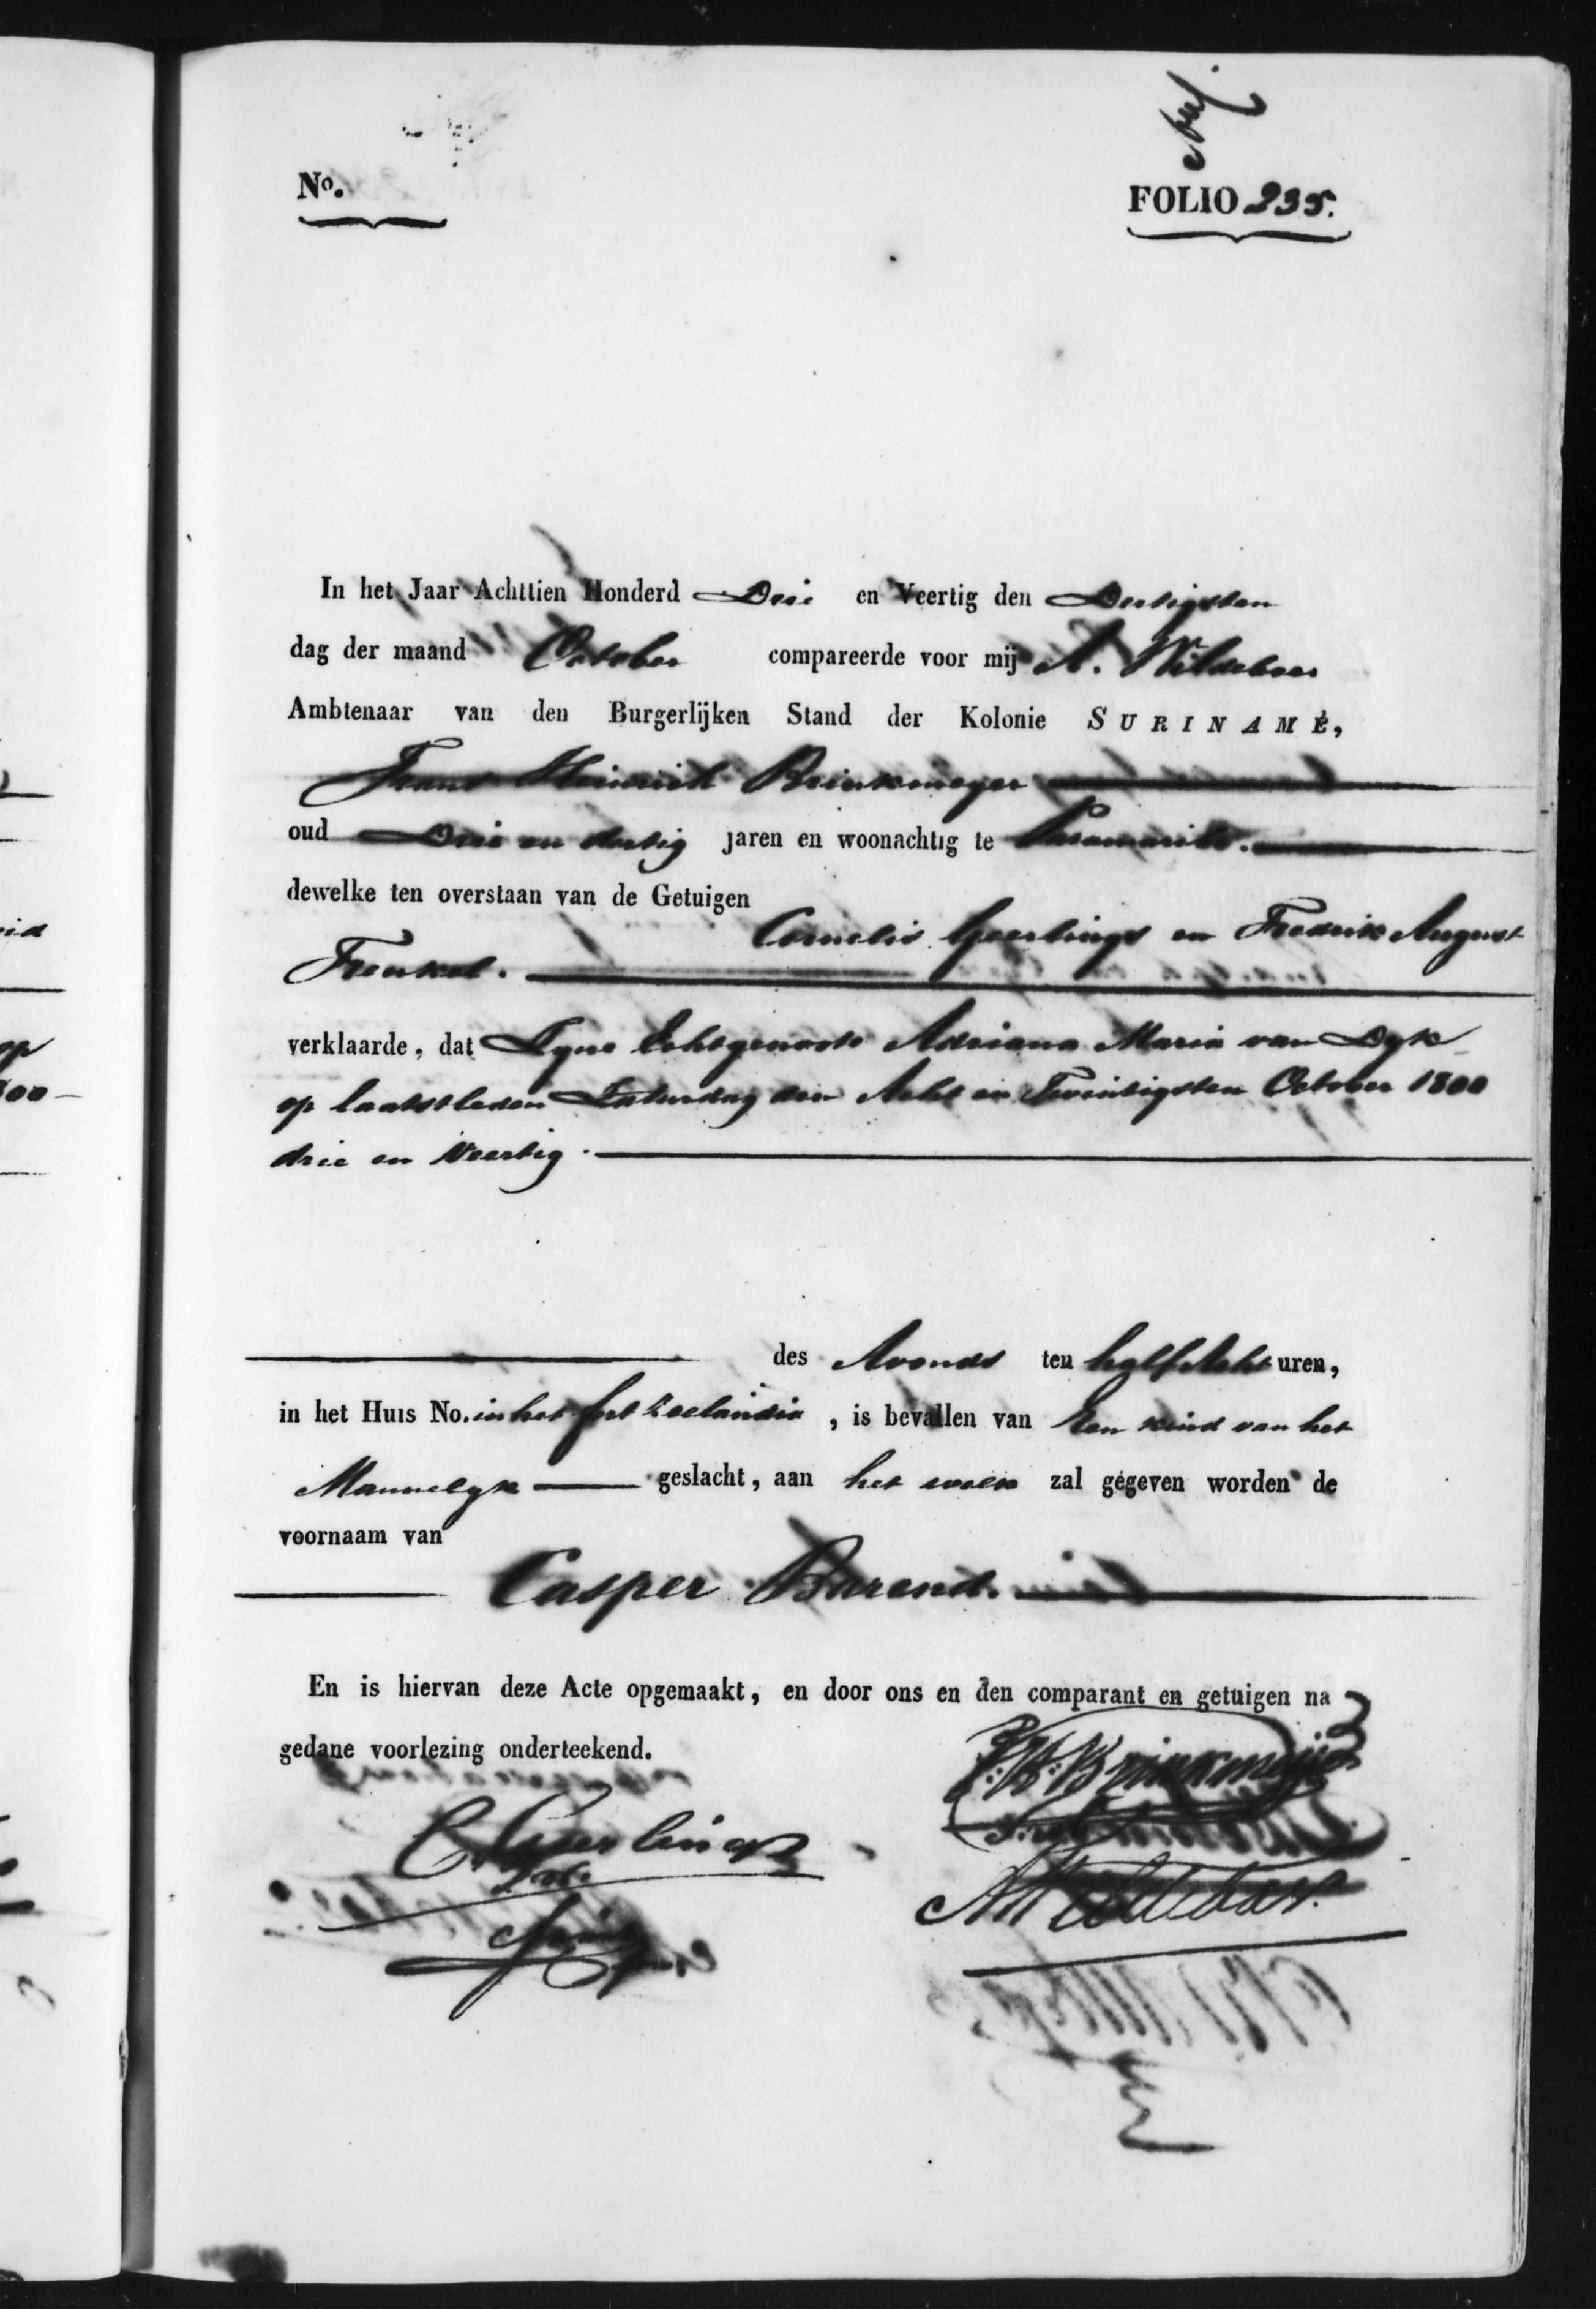 No.
FOLIO 235.
In het Jaar Achttien Honderd Drie en Veertig den Dertigsten
dag der maand October compareerde voor mij A. Wildeboer
Ambtenaar van den Burgerlijken Stand der Kolonie SURINAME,
Frans Heinrich Brinkmeyer
oud Drie en dertig jaren en woonachtig te Paramaribo.
dewelke ten overstaan van de Getuigen
Cornelis Geerlings en Fredrik August
Frenkel.
verklaarde, dat Zyne Echtgenoote Adriana Maria van Dyk
op laatstleden Saturdag den Acht en Twintigsten October 1800
drie en Veertig.
des Avonds ten half Acht uren,
in het Huis No. in het fort Zeelandia, is bevallen van Een kind van het
Mannelyk geslacht, aan het welk zal gegeven worden de
voornaam van
Casper Barend.
En is hiervan deze Acte opgemaakt, en door ons en den comparant en getuigen na
gedane voorlezing onderteekend.
F. H. Brinkmeyer
C. Geerlings
A Wildeboer.